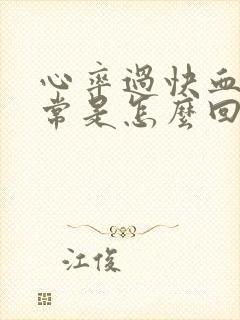 心率過快血
常是怎麼回
江俊